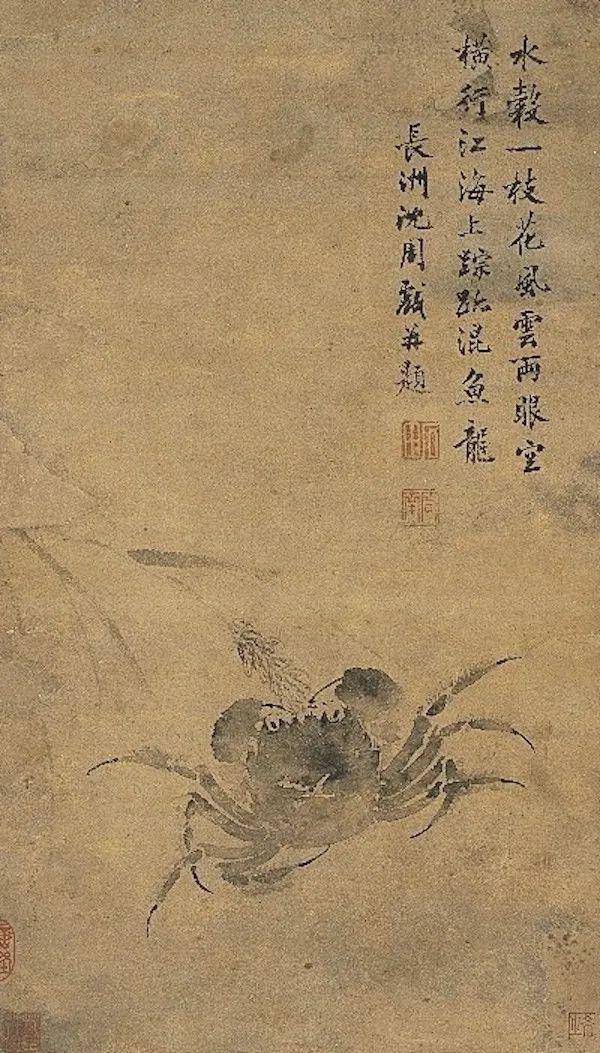 水穀一枝花風雲兩眼空
橫行江海上踪跡混魚龍
長洲沈周戲并題